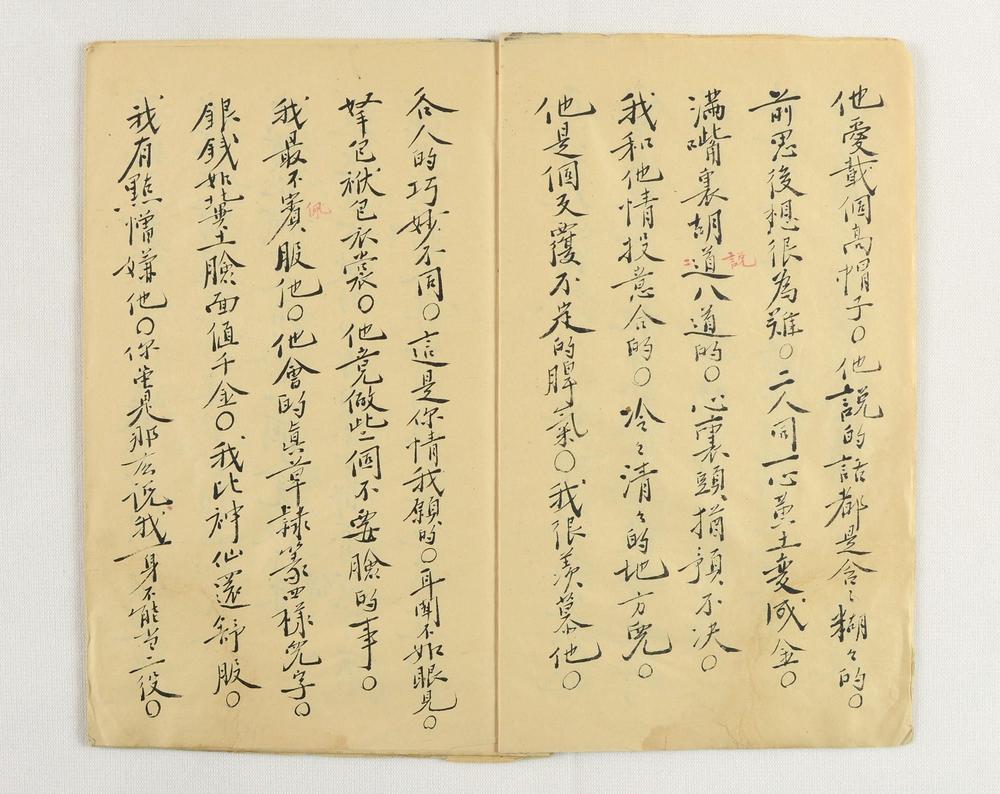 他愛戴個高帽子〇他說的話都是含〻糊々的〇
前思後想很為難〇二人同一心黃土變成金〇
滿嘴裏胡道八道的〇心裏頭猶預不决〇
説
我和他情投意合的〇冷〻清々的地方兒〇
他是個反覆不定的脾氣〇我很羨慕他〇
各人的巧妙不同〇這是你情我願的〇耳聞不如眼見〇
拏包袱包衣裳〇他竟做些個不要臉的事〇
我最不賓服他〇他會的真草隸篆四樣兒字〇
佩
銀錢如糞土臉面值千金〇我比神仙還舒服〇
我有點憎嫌他〇你雖是那広说我一身不能当二役〇